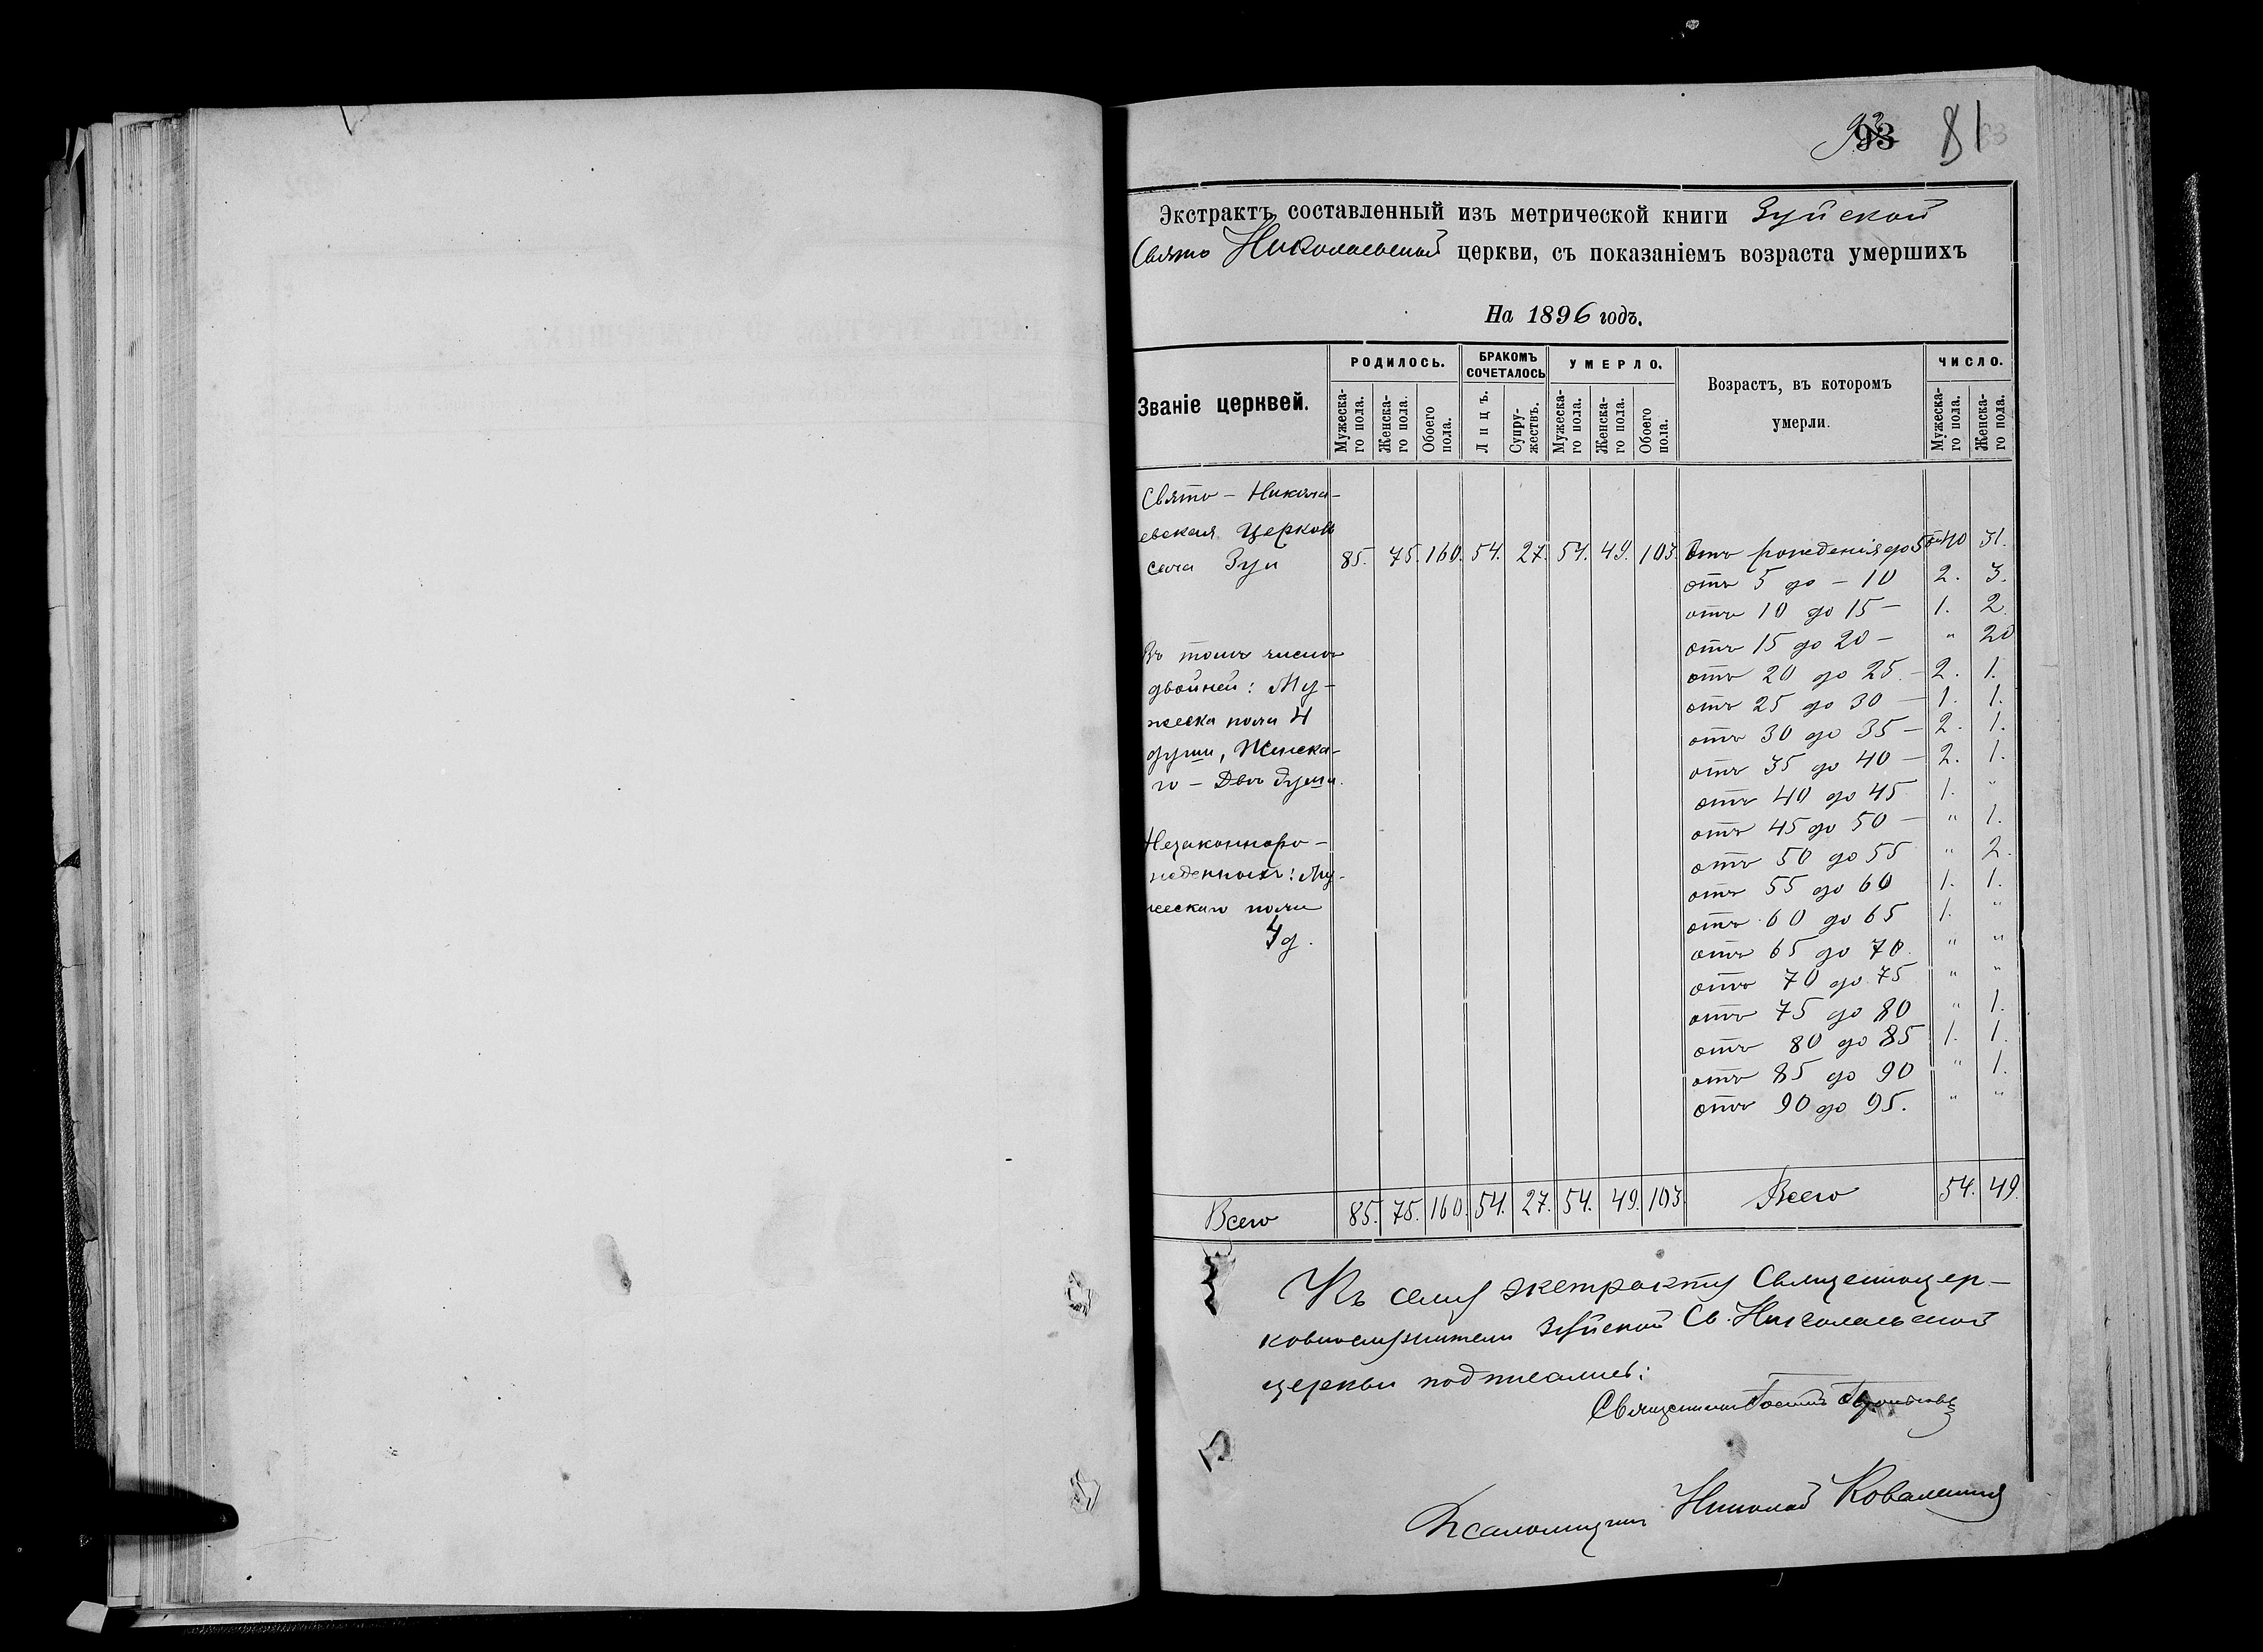 93 81
Экстрактъ составленный изъ метрической книги Зуйской
Свято Николаевской церкви, съ показаніемъ возраста умершихъ
На 1896 годъ.
Званіе церквей. РОДИЛОСЬ. БРАКОМЪ СОЧЕТАЛОСЬ УМЕРЛО. Возрастъ, въ которомъ умерли. ЧИСЛО.
Мужеска-го пола. Женска-го пола. Обоего пола. Лицъ. Супру-жествъ. Мужеска-го пола. Женска-го пола. Обоего пола. Мужеска-го пола. Женска-го пола.
Свято – Никола-
евская Церковь
села Зуи 85. 75. 160. 54. 27. 54. 49. 103. Отъ рожденія до 5 40 31.
отъ 5 до – 10 2. 3.
отъ 10 до 15 – 1. 2
отъ 15 до 20 – " 2
отъ 20 до 25. – 2. 1.
отъ 25 до 30 – 1. 1.
отъ 30 до 35 – 2. 1.
отъ 35 до 40 – 2. 1.
отъ 40 до 45 1. "
отъ 45 до 50 – " 1.
отъ 50 до 55 " 2.
отъ 55 до 60 1. 1.
отъ 60 до 65 1. "
отъ 65 до 70. " "
отъ 70 до 75 " "
отъ 75 до 80 " 1.
отъ 80 до 85 1. 1.
отъ 85 до 90 " 1.
отъ 90 до 95. " "
Въ томъ числѣ
двойней: Му-
жеска пола 4
души, Женска-
го – Двѣ души.
Незаконноро-
жденныхъ: Му-
жескаго пола
4 д.
Всего 85. 75. 160. 54. 27. 54. 49. 103. Всего 54. 49.
Къ сему экстракту Священноцер-
ковнослужители Зуйской Св. Николаевской
церкви подписались:
Священникъ
Псаломщикъ Николай